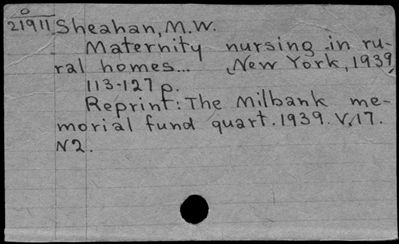 O
21911 Sheahan, M.W.
Maternity nursing in ru-
ral homes... New York, 1939,
113-127 p.
Reprint: The Milbank me-
morial fund quart. 1939. V.17.
N2.